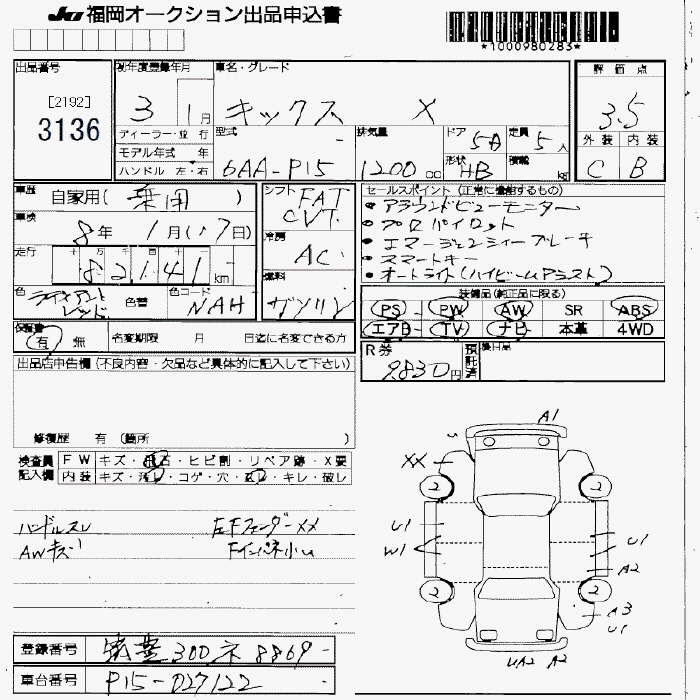 JU 福岡オークション出品申込書
*1000980283*
出品番号
[2192]
3136
初年度登録年月
3 1月
ディーラー・並行
モデル年式 年
ハンドル 左・右
車名・グレード
キックス X
型式
6AA-P15
排気量
1200 cc
ドア 5D
形状 HB
定員 5人
積載 kg
評価点
3.5
外装 内装
C B
車歴
自家用(乗用)
車検
8年 1月(17日)
走行
十 万 千 百 十
82141 km
色
レッド
色替
色コード
NAH
シフト
FAT
CVT
冷房
AC
燃料
ガソリン
セールスポイント (正常に機能するもの)
・アラウンドビューモニター
・プロパイロット
・エマージェンシィーブレーキ
・スマートキー
・オートライト(ハイビームアシスト)
装備品(純正品に限る)
PS PW AW SR ABS
エアB TV ナビ 本革 4WD
保証書
有 無
名変期限 月 日迄に名変できる方
R券
9830円
預託済
後日品
出品店申告欄 (不良内容・欠品など具体的に記入して下さい)
修復歴 有 (箇所 )
検査員記入欄
FW キズ・飛石・ヒビ割・リペア跡・X要
内装 キズ・汚レ・コゲ・穴・スレ・キレ・破レ
ハンドルスレ 左Fフェンダーxx
AWキズ Fインパネ小u
A1
u
XX
2 2
U1
W1
U1
A2
2 2
A3
U1
UA2 A2
登録番号 筑豊 300 ネ 8869
車台番号 P15-027122